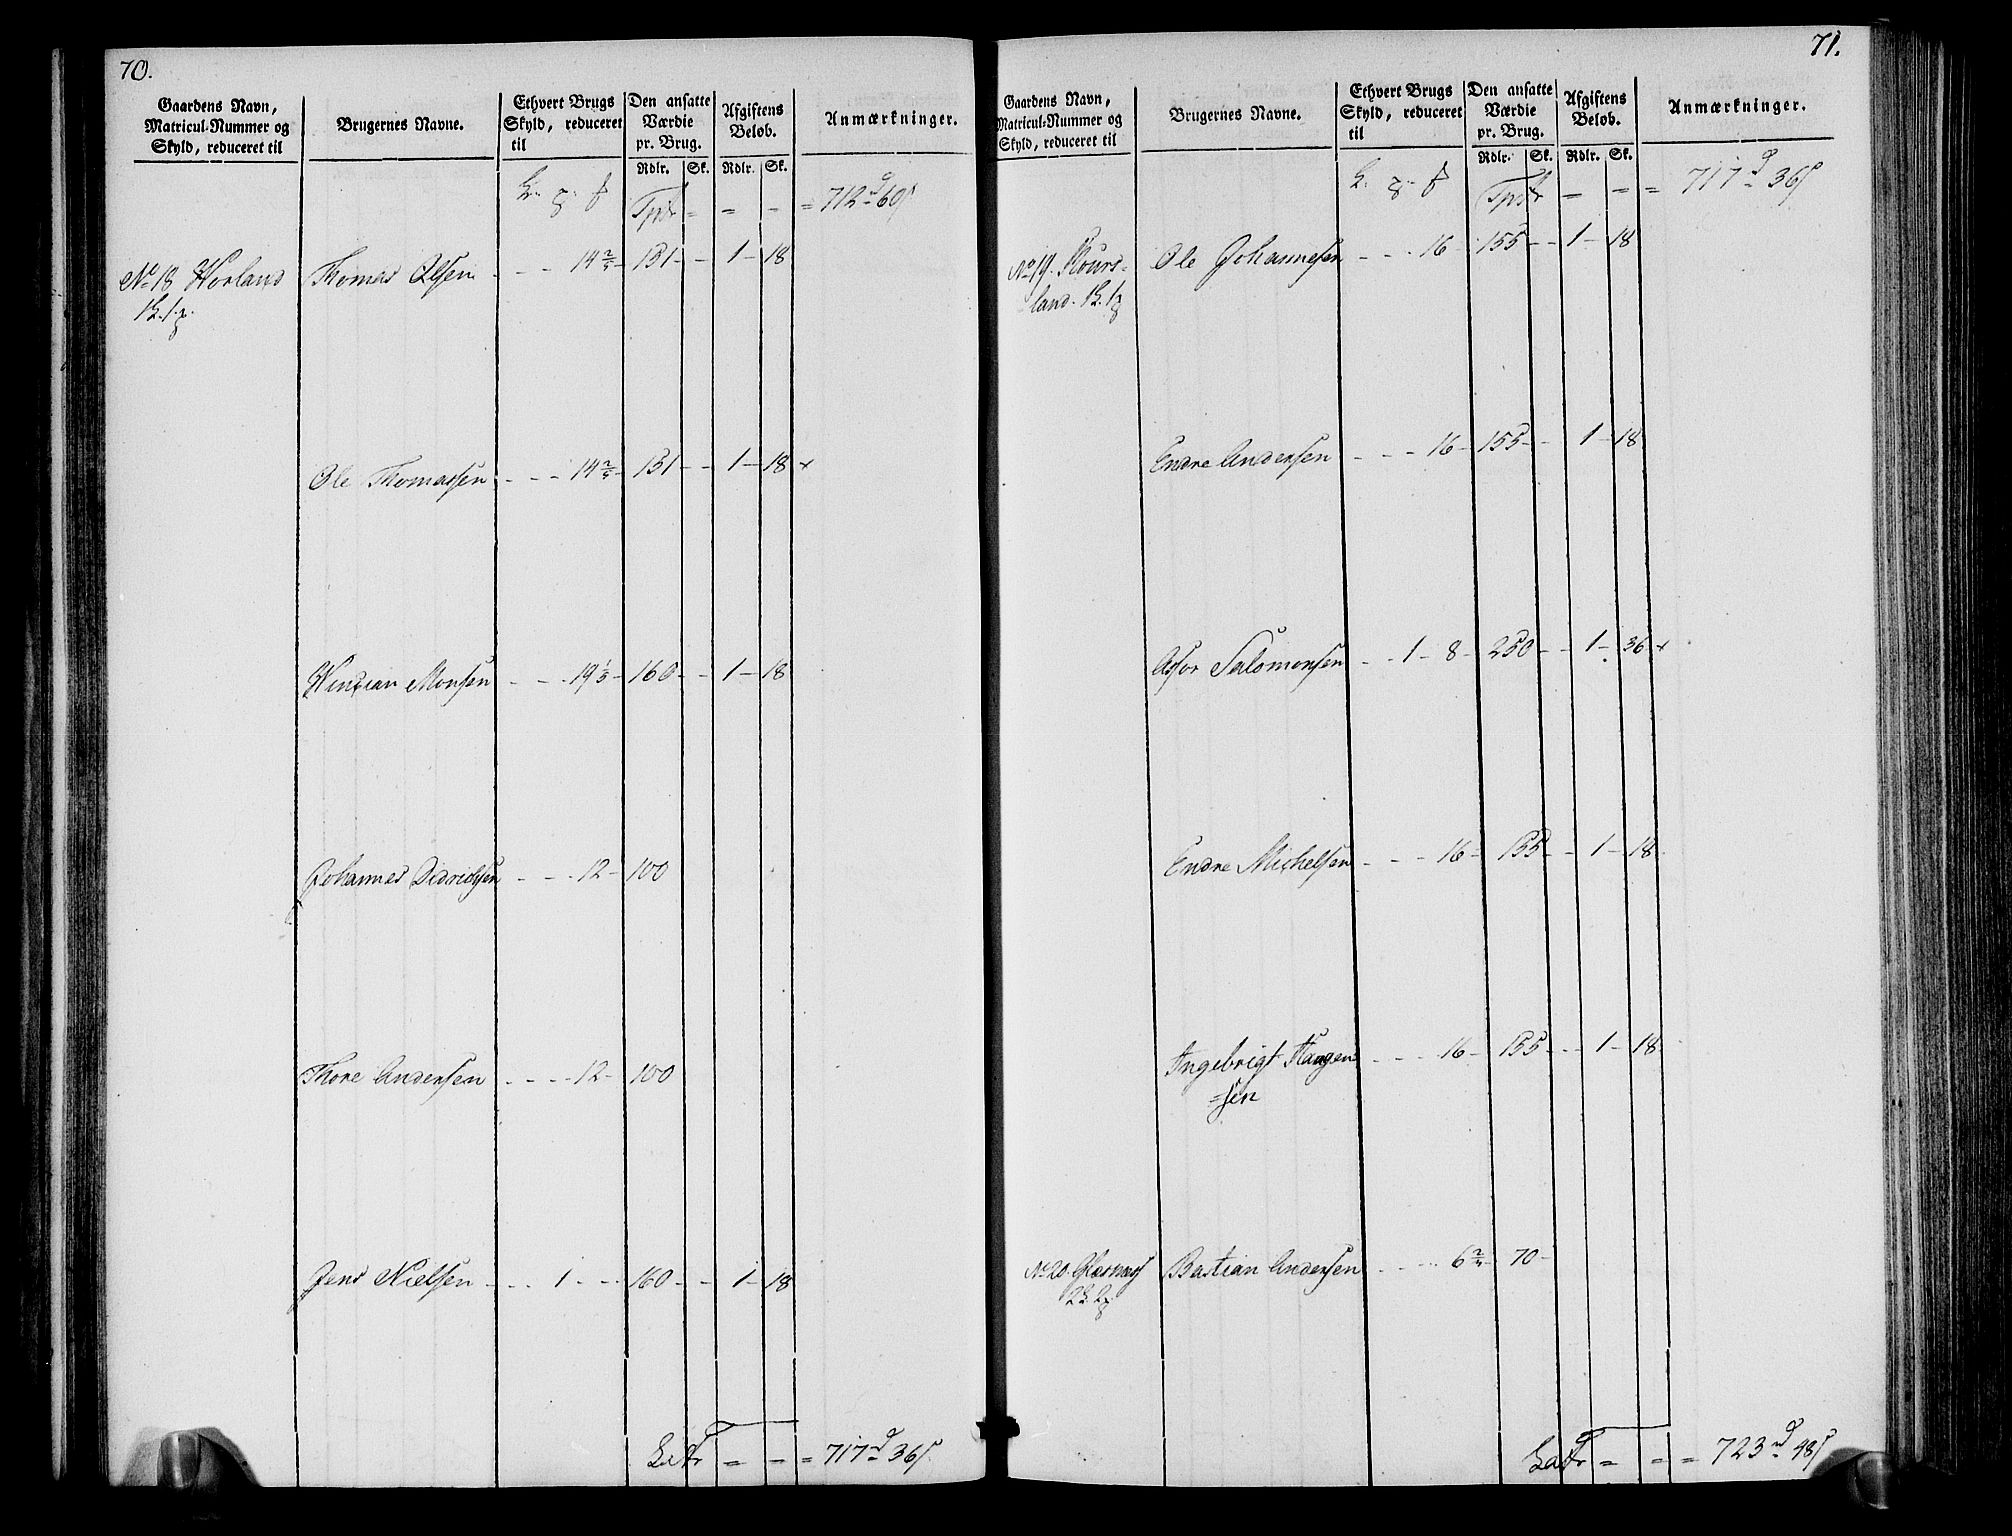 70.
Gaardens Navn,
Matricul-Nummer og
Skyld, reduceret til
Brugernes Navne.
Ethvert Brugs
Skyld, reduceret
til
Den ansatte
Værdie
pr. Brug.
Afgiftens
Beløb.
Anmærkninger.
Rdlr. Sk. Rdlr. Sk.
Tpst = = - = 712 60
No 18 Horland Thomas Olsen - - - 14 2/5 - 131 - - 1 - 18
1 1
Ole Thomassen - - - 14 2/5 - 131 - - 1 - 18
Monsen - - - 19 1/5 - 160 - - 1 - 18
Johannes Didrichsen - - - 12 - 100
Thore Andersen - - - - 12 - 100
Jens Nielsen - - - 1 - - - 160 - - 1 - 18
Latr = = = 717 36
71.
Gaardens Navn,
Matricul-Nummer og
Skyld, reduceret til
Brugernes Navne.
Ethvert Brugs
Skyld, reduceret
til
Den ansatte
Værdie
pr. Brug.
Afgiftens
Beløb.
Anmærkninger.
Rdlr. Sk. Rdlr. Sk.
Tpst = = = 717 36
No 19. Ole Johannesen - - - 16 - 155 - - 1 - 18
land. 1 1
Endre Andersen - - - 16 - 155 - - 1 - 18
Asor Salomonsen - - 1 - 8 - 250 - - 1 - 36
Endre Michelsen - - - 16 - 155 - - 1 - 18
Ingebrigt Haagen - - - 16 - 155 - - 1 - 18
=sen
No 20. Bastian Andersen - - - - 6 2/5 - 70 -
2 2
Latr = = = 723 48